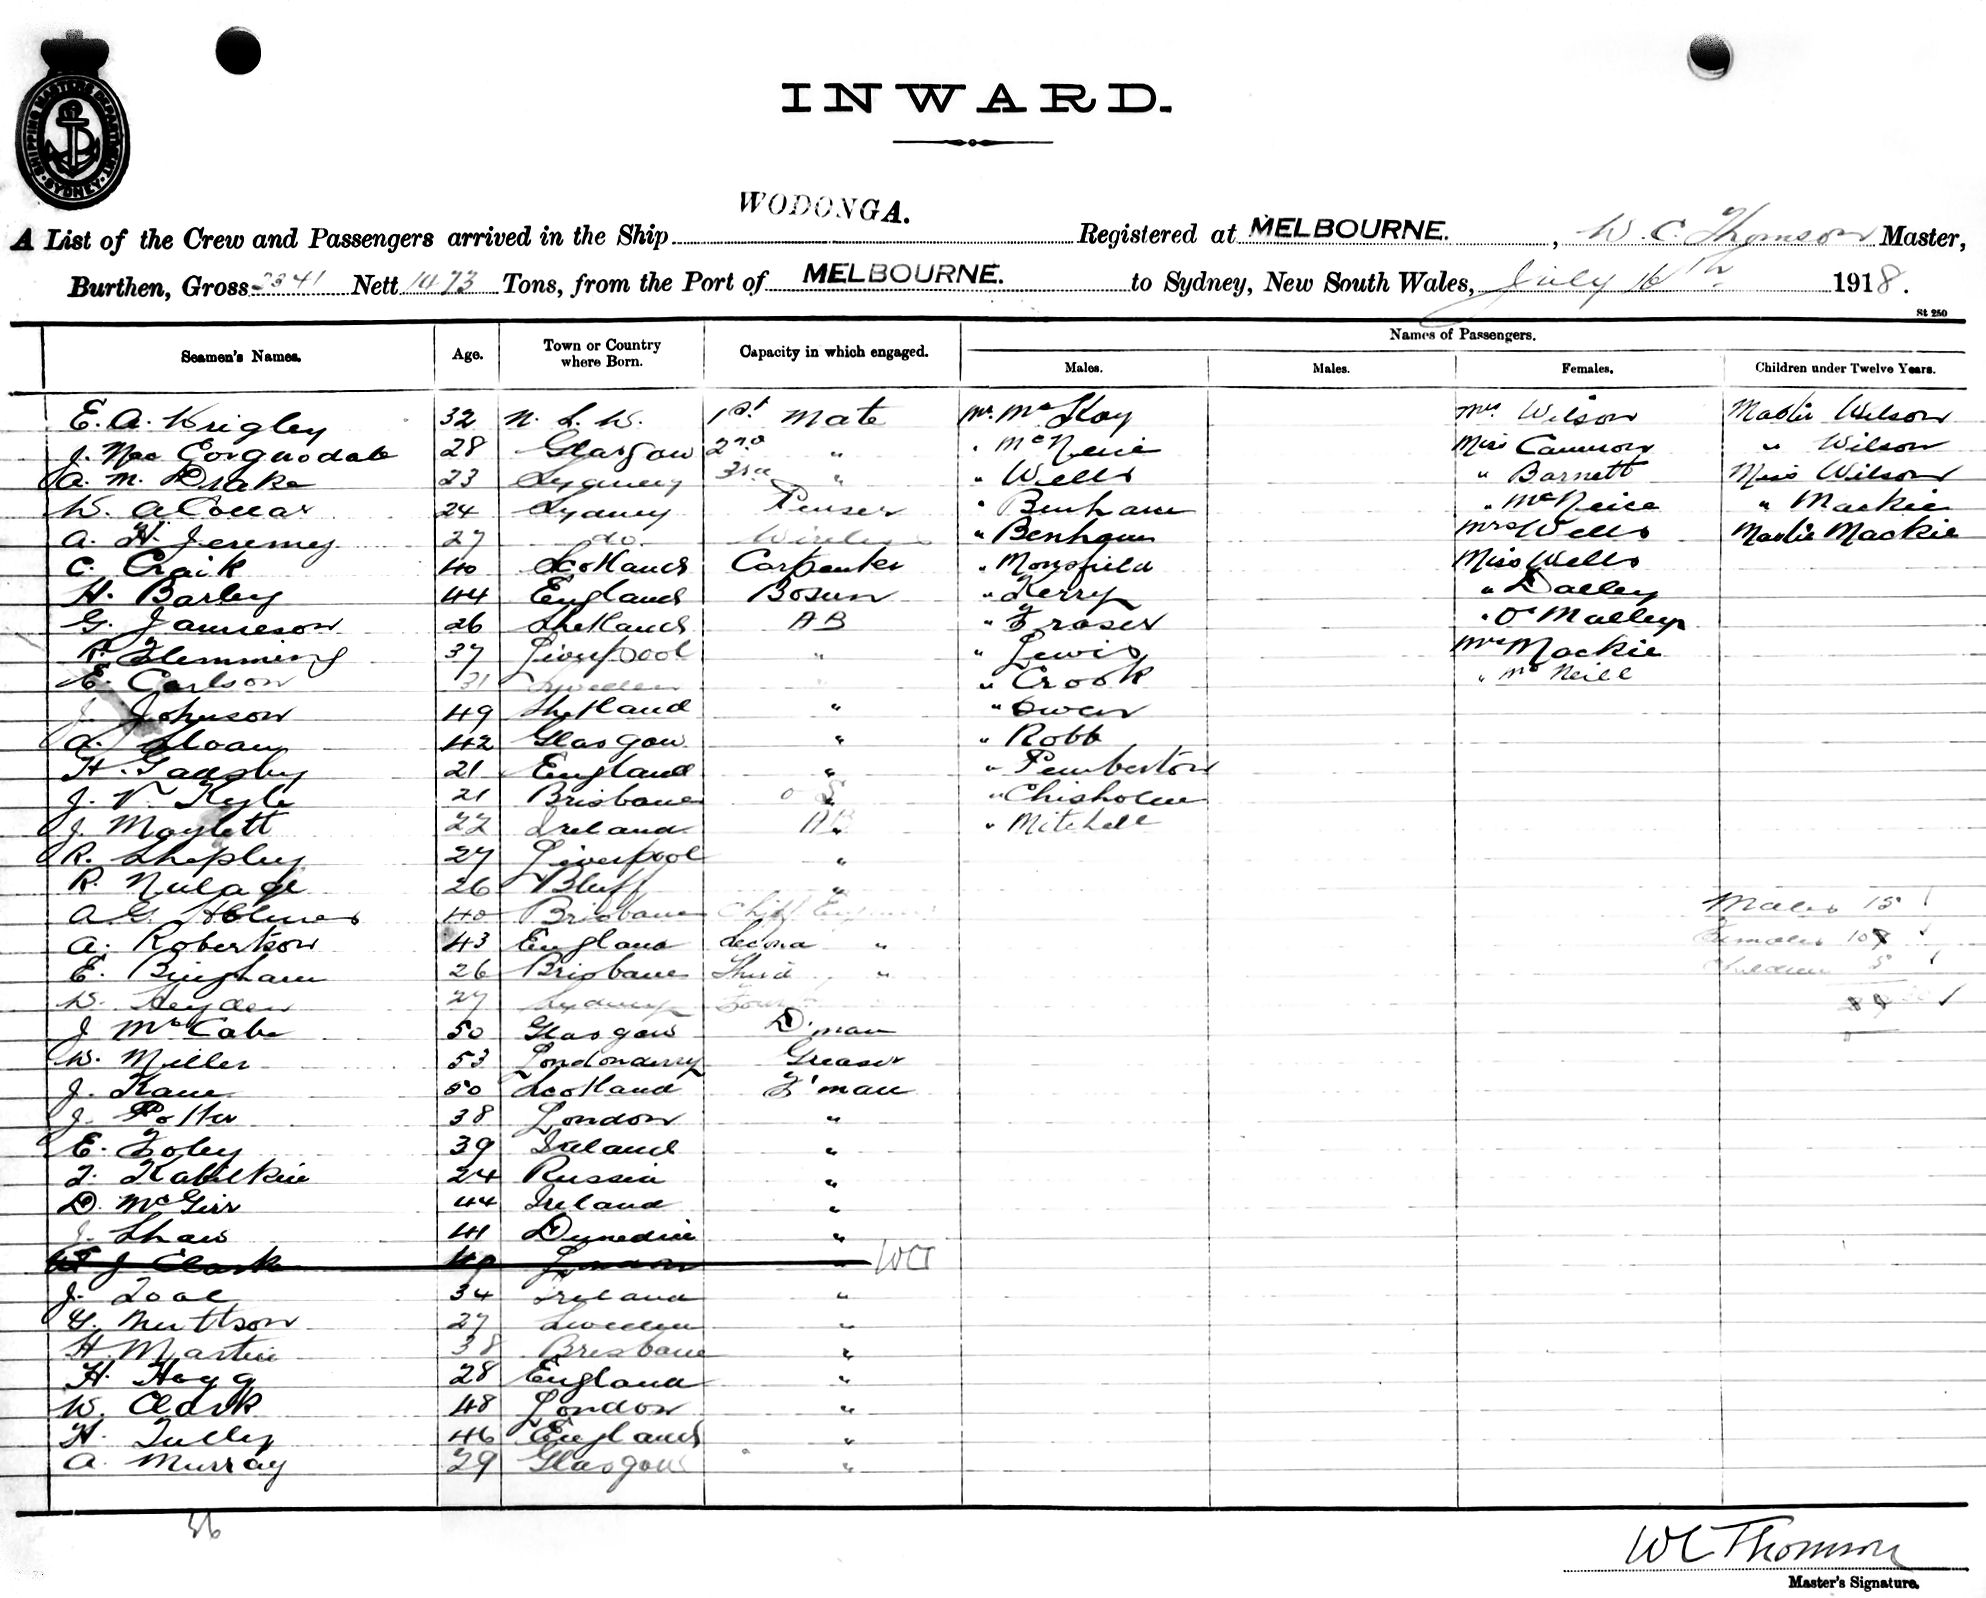 SHIPPING MASTERS DEPARTMENT
SYDNEY
INWARD.
WODONGA.
A List of the Crew and Passengers arrived in the Ship Registered at MELBOURNE. , W. C. Thomson Master,
Burthen, Gross 2341 Nett 1473 Tons, from the Port of MELBOURNE. to Sydney, New South Wales, July 16th 1918.
St 250
Seamen's Names. Age. Town or Country where Born. Capacity in which engaged. Names of Passengers.
Males. Males. Females. Children under Twelve Years.
E. A. Wrigley 32 N. S. W. 1st Mate Mr. McKay Mrs Wilson Master Wilson
J. Mac Corquodale 28 Glasgow 2nd " " McNeice Miss Cameron " Wilson
A. M. Drake 23 Sydney 3rd " " Wells " Barnett Miss Wilson
W. A 24 Sydney Purser " Benham " McNeice " Mackie
A. H. Jeremy 27 do Wireless " Benham Mrs Wells Master Mackie
C. Craik 40 Scotland Carpenter " Monsfield Miss Wells
H. Barley 44 England Bosun " Kerry " Dalley
G. Jamieson 26 Shetland AB " Fraser " O'Malley
R. Flemming 37 Liverpool " " Lewis Mrs Mackie
E. Carlson 31 Sweden " " Crook " McNeill
J. Johnson 49 Shetland " " Owen
A. Sloan 42 Glasgow " " Robb
H. Gadsby 21 England " " Pemberton
J. V. Kyle 21 Brisbane O S " Chisholm
J. Maylett 22 Ireland AB " Mitchell
R. Shepley 27 Liverpool "
R. 26 Bluff "
A G. Holmes 40 Brisbane Chief Engineer Males 15
A. Robertson 43 England Second " Females 10
E. Bingham 26 Brisbane Third " Children 5
W. Heyden 27 Sydney Fourth
J. McCabe 50 Glasgow D'man
W. Miller 53 Londonderry Greaser
J. Kane 50 Scotland F'man
J. Potter 38 London "
E. Foley 39 Ireland "
24 Russia "
D. McGirr 44 Ireland "
J. Shaw 41 Dunedin "
J Clark 49 London " WCT
J. Toal 34 Ireland "
Muttson 27 Sweden "
H. Martin 38 Brisbane "
H. Hogg 28 England "
W. Clark 48 London "
H. Tully 46 England "
A. Murray 29 Glasgow "
36
WC Thomson
Master's Signature.